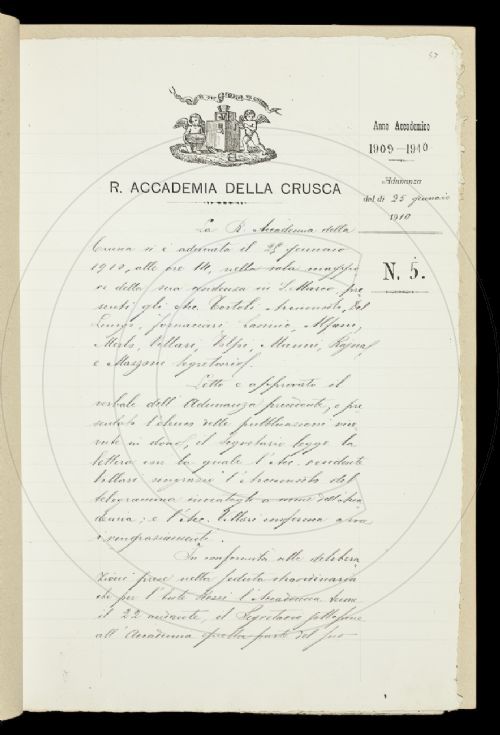 57
Anno Accademico
1909-1910
Adunanza
del dì 25 gennaio
1910
N. 5.
R. ACCADEMIA DELLA CRUSCA
La R. Accademia della
Crusca si è adunata il 25 gennaio
1910, alle ore 14, nella sala maggio
re della sua residenza in S. Marco, pre
senti gli Acc. Tortoli, Arciconsolo, Del
Lungo, Fornaciari, Alfani,
Merlo, Villari, Volpi, Rajna,
e Mazzoni Segretario.
Letto e approvato il
verbale dell'Adunanza precedente, e pre
sentato l'elenco delle pubblicazioni rice
vute in dono, il Segretario legge la
lettera con la quale l'Acc. residente
Villari ringrazia l'Arciconsolo del
telegramma inviatogli a nome dell'Acca
demia; e l'Acc. Villari conferma a voce
i ringraziamenti.
In conformità alle delibera
zioni prese nella seduta straordinaria
che per l'Ente Rezzi l'Accademia tenne
il 22 andante, il Segretario sottopone
all'Accademia quella parte del suo